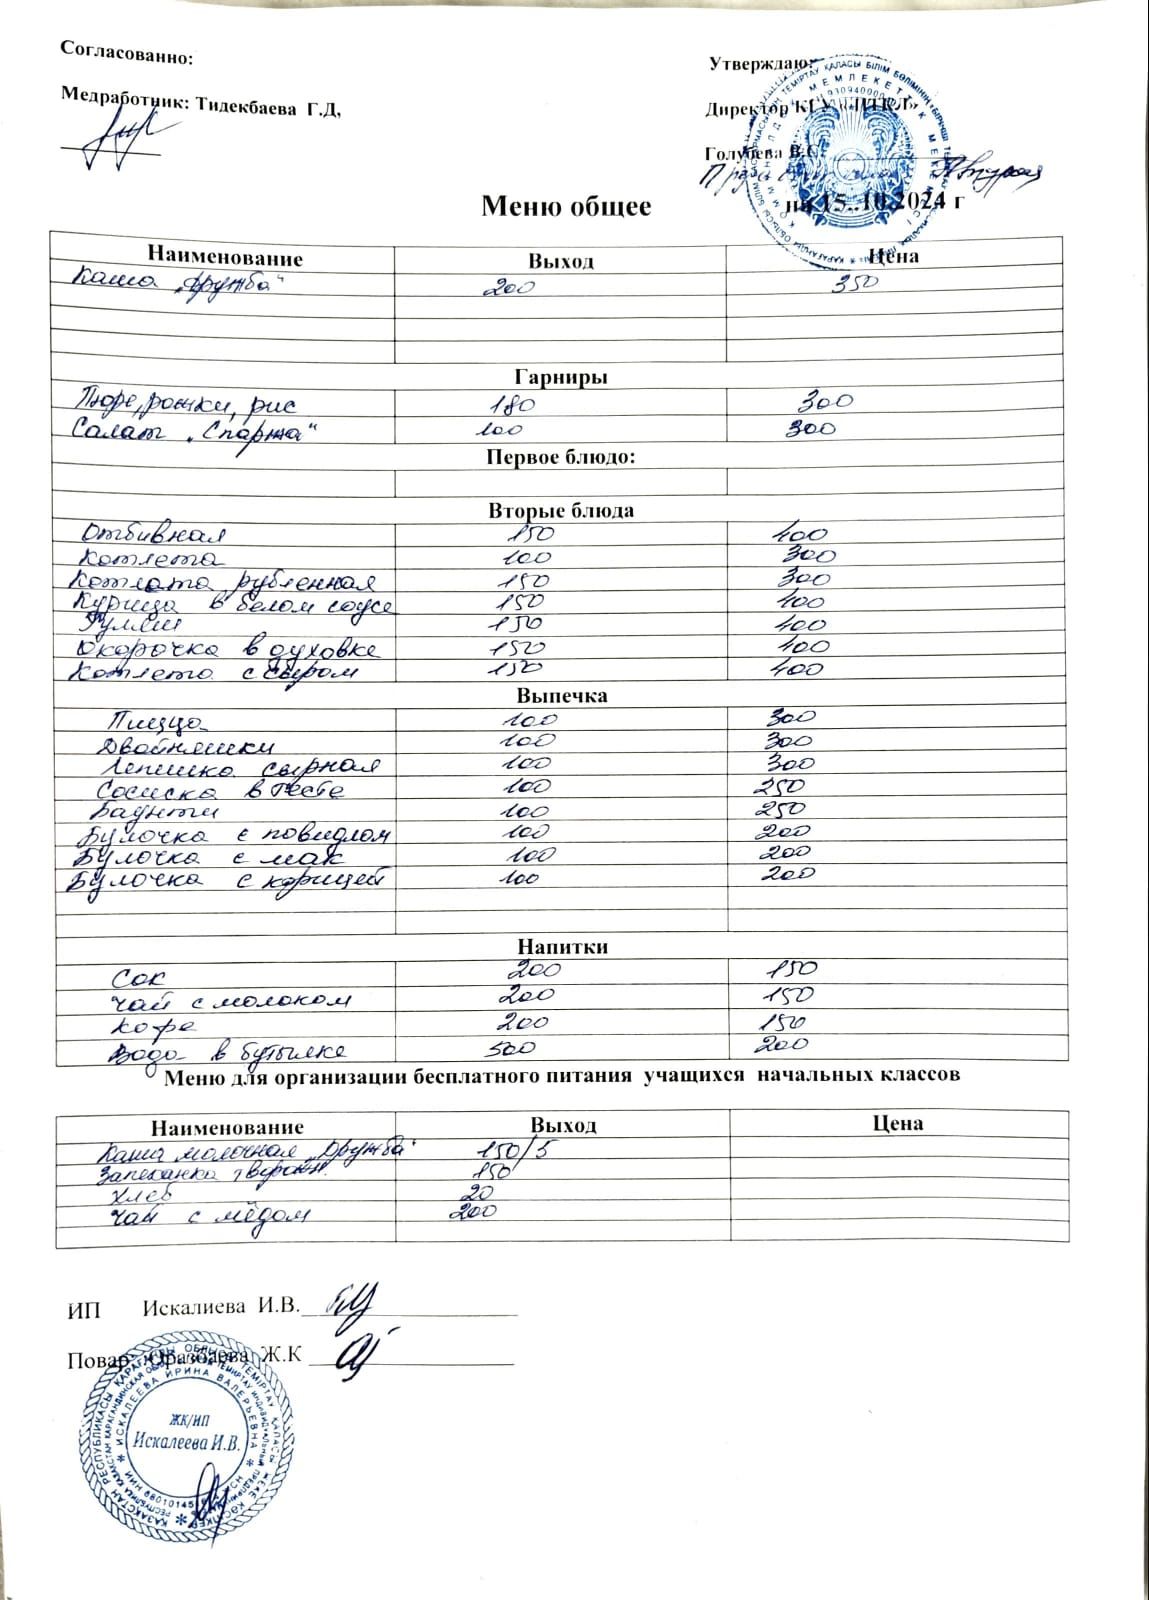 Согласованно:
Утверждаю:
Медработник: Тидекбаева Г.Д,
Директор КГУ
Голубева В.С
Меню общее
на 15. .10.2024 г
Наименование Выход Цена
Каша „Дружба" 200 350
Гарниры
Пюре, рожки, рис 180 300
Салат „Спаржа" 100 300
Первое блюдо:
Вторые блюда
Отбивная 150 400
Котлета 100 300
Котлета рубленная 150 300
Курица в белом соусе 150 400
Гуляш 150 400
Окорочка в духовке 150 400
Котлета с сыром 150 400
Выпечка
Пицца 100 300
Двойняшки 100 300
Лепишка сырная 100 300
Сосиска в тесте 100 250
Баунти 100 250
Булочка с повидлом 100 200
Булочка с мак 100 200
Булочка с корицей 100 200
Напитки
Сок 200 150
Чай с молоком 200 150
Кофе 200 150
Вода в бутылке 500 200
Меню для организации бесплатного питания учащихся начальных классов
Наименование Выход Цена
Каша молочная „Дружба" 150/5
Запеканка творожн. 150
Хлеб 20
Чай с мёдом 200
ИП Искалиева И.В.
Повар Оразбаева Ж.К
ЖК/ИП
Искалеева И.В.
ИСКАЛЕЕВА ИРИНА ВАЛЕРЬЕВНА